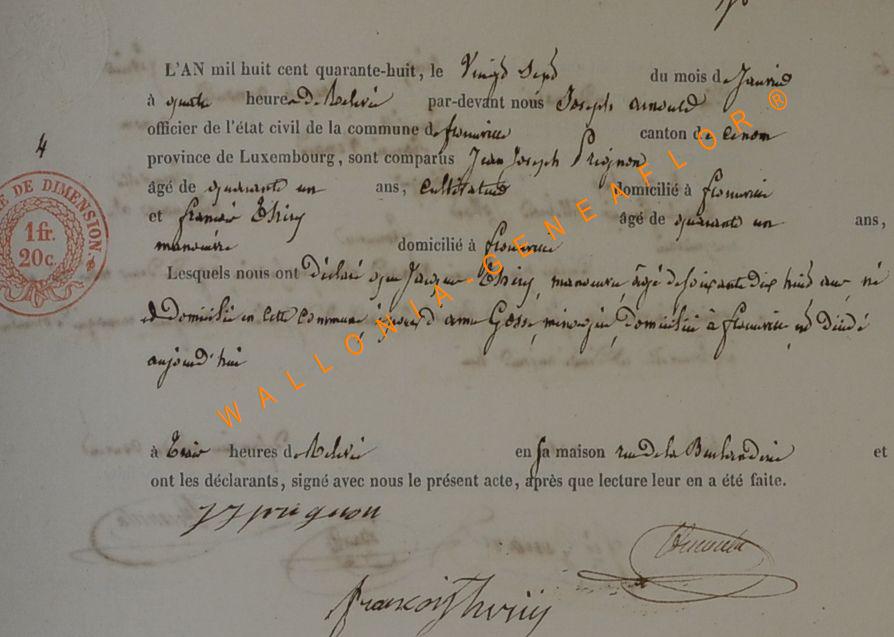 L'AN mil huit cent quarante-huit, le Vingt Sept du mois de Janvier
à quatre heures de Relevée par-devant nous Joseph Arnould
officier de l'état civil de la commune de flouville canton de
province de Luxembourg, sont comparus Jean Joseph Prignon
4
âgé de quarante un ans, Cultivateur domicilié à
et françois Thiry âgé de quarante un ans,
manoeuvre domicilié à
Lesquels nous ont Déclaré que Jacques Thiry, manoeuvre, âgé de soixante dix huit ans, né
et Domicilié en cette Commune, époux d'anne Gosse, ménagère, domiciliée à est décédé
aujourd'hui
à Trois heures de Relevée en sa maison rue de la et
ont les déclarants, signé avec nous le présent acte, après que lecture leur en a été faite.
JJ prignon
Arnould
françois Thiry
E DE DIMENSION.
1 fr.
20 c.
WALLONIA-GENEAFLOR®